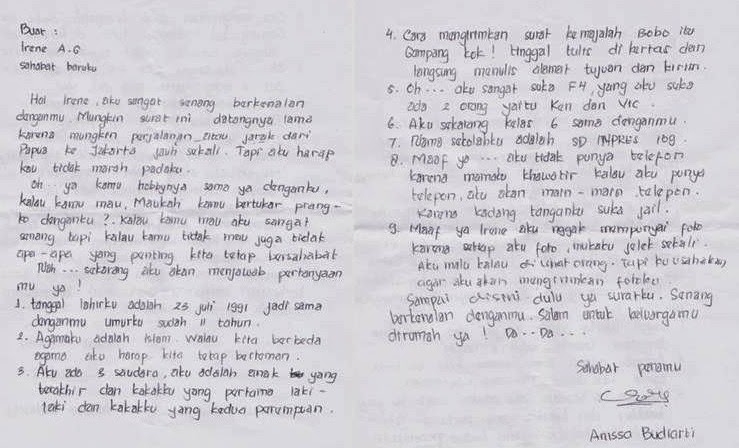 Buat :
Irene A.G
Sahabat baruku
Hai Irene, aku sangat senang berkenalan
denganmu. Mungkin surat ini datangnya lama
karena mungkin perjalanan atau jarak dari
Papua ke Jakarta jauh sekali. Tapi aku harap
kau tidak marah padaku.
Oh .. ya kamu hobbynya sama ya denganku,
kalau kamu mau, Maukah kamu bertukar prang-
ko denganku ?. Kalau kamu mau aku sangat
senang tapi kalau kamu tidak mau juga tidak
apa-apa yang penting kita tetap bersahabat
Nah ... sekarang aku akan menjawab pertanyaan
mu ya !
1. tanggal lahirku adalah 23 juli 1991 jadi sama
denganmu umurku sudah 11 tahun.
2. Agamaku adalah Islam. Walau kita berbeda
agama aku harap kita tetap berteman.
3. Aku ada 3 saudara, aku adalah anak yang
terakhir dan kakakku yang pertama laki-
laki dan kakakku yang kedua perempuan.
4. Cara mengirimkan surat ke majalah Bobo itu
Gampang kok ! tinggal tulis di kertas dan
langsung menulis alamat tujuan dan kirim.
5. Oh ... aku sangat suka F4, yang aku suka
ada 2 orang yaitu Ken dan Vic.
6. Aku sekarang kelas 6 sama denganmu.
7. Nama sekolahku adalah SD INPRES 109.
8. Maaf ya ... aku tidak punya telepon
karena mamaku khawatir kalau aku punya
telepon, aku akan main-main telepon.
Karena kadang tanganku suka jail.
9. Maaf ya Irene aku nggak mempunyai foto
karena setiap aku foto, mukaku jelek sekali.
Aku malu kalau dilihat orang. Tapi ku usahakan
agar aku akan mengirimkan fotoku.
Sampai disini dulu ya suratku. Senang
berkenalan denganmu. Salam untuk keluargamu
dirumah ya ! Da .. Da ...
Sahabat penamu
Anissa Budiarti